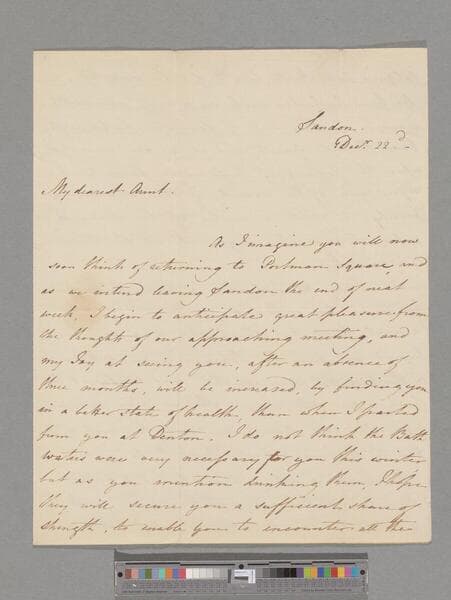 Sandon.
Decr. 22d
My dearest Aunt.
As I imagine you will now
soon think of returning to Portman Square, and
as we intend leaving Sandon the end of next
week, I begin to anticipate great pleasure from
the thoughts of our approaching meeting, and
my Joy at seeing you, after an absence of
three months, will be increased, by finding you
in a better state of health, than when I parted
from you at Denton. I do not think the Bath
waters were very necessary for you this winter
but as you mention drinking them, I hope
they will secure you a sufficient share of
strength, to enable you to encounter all the